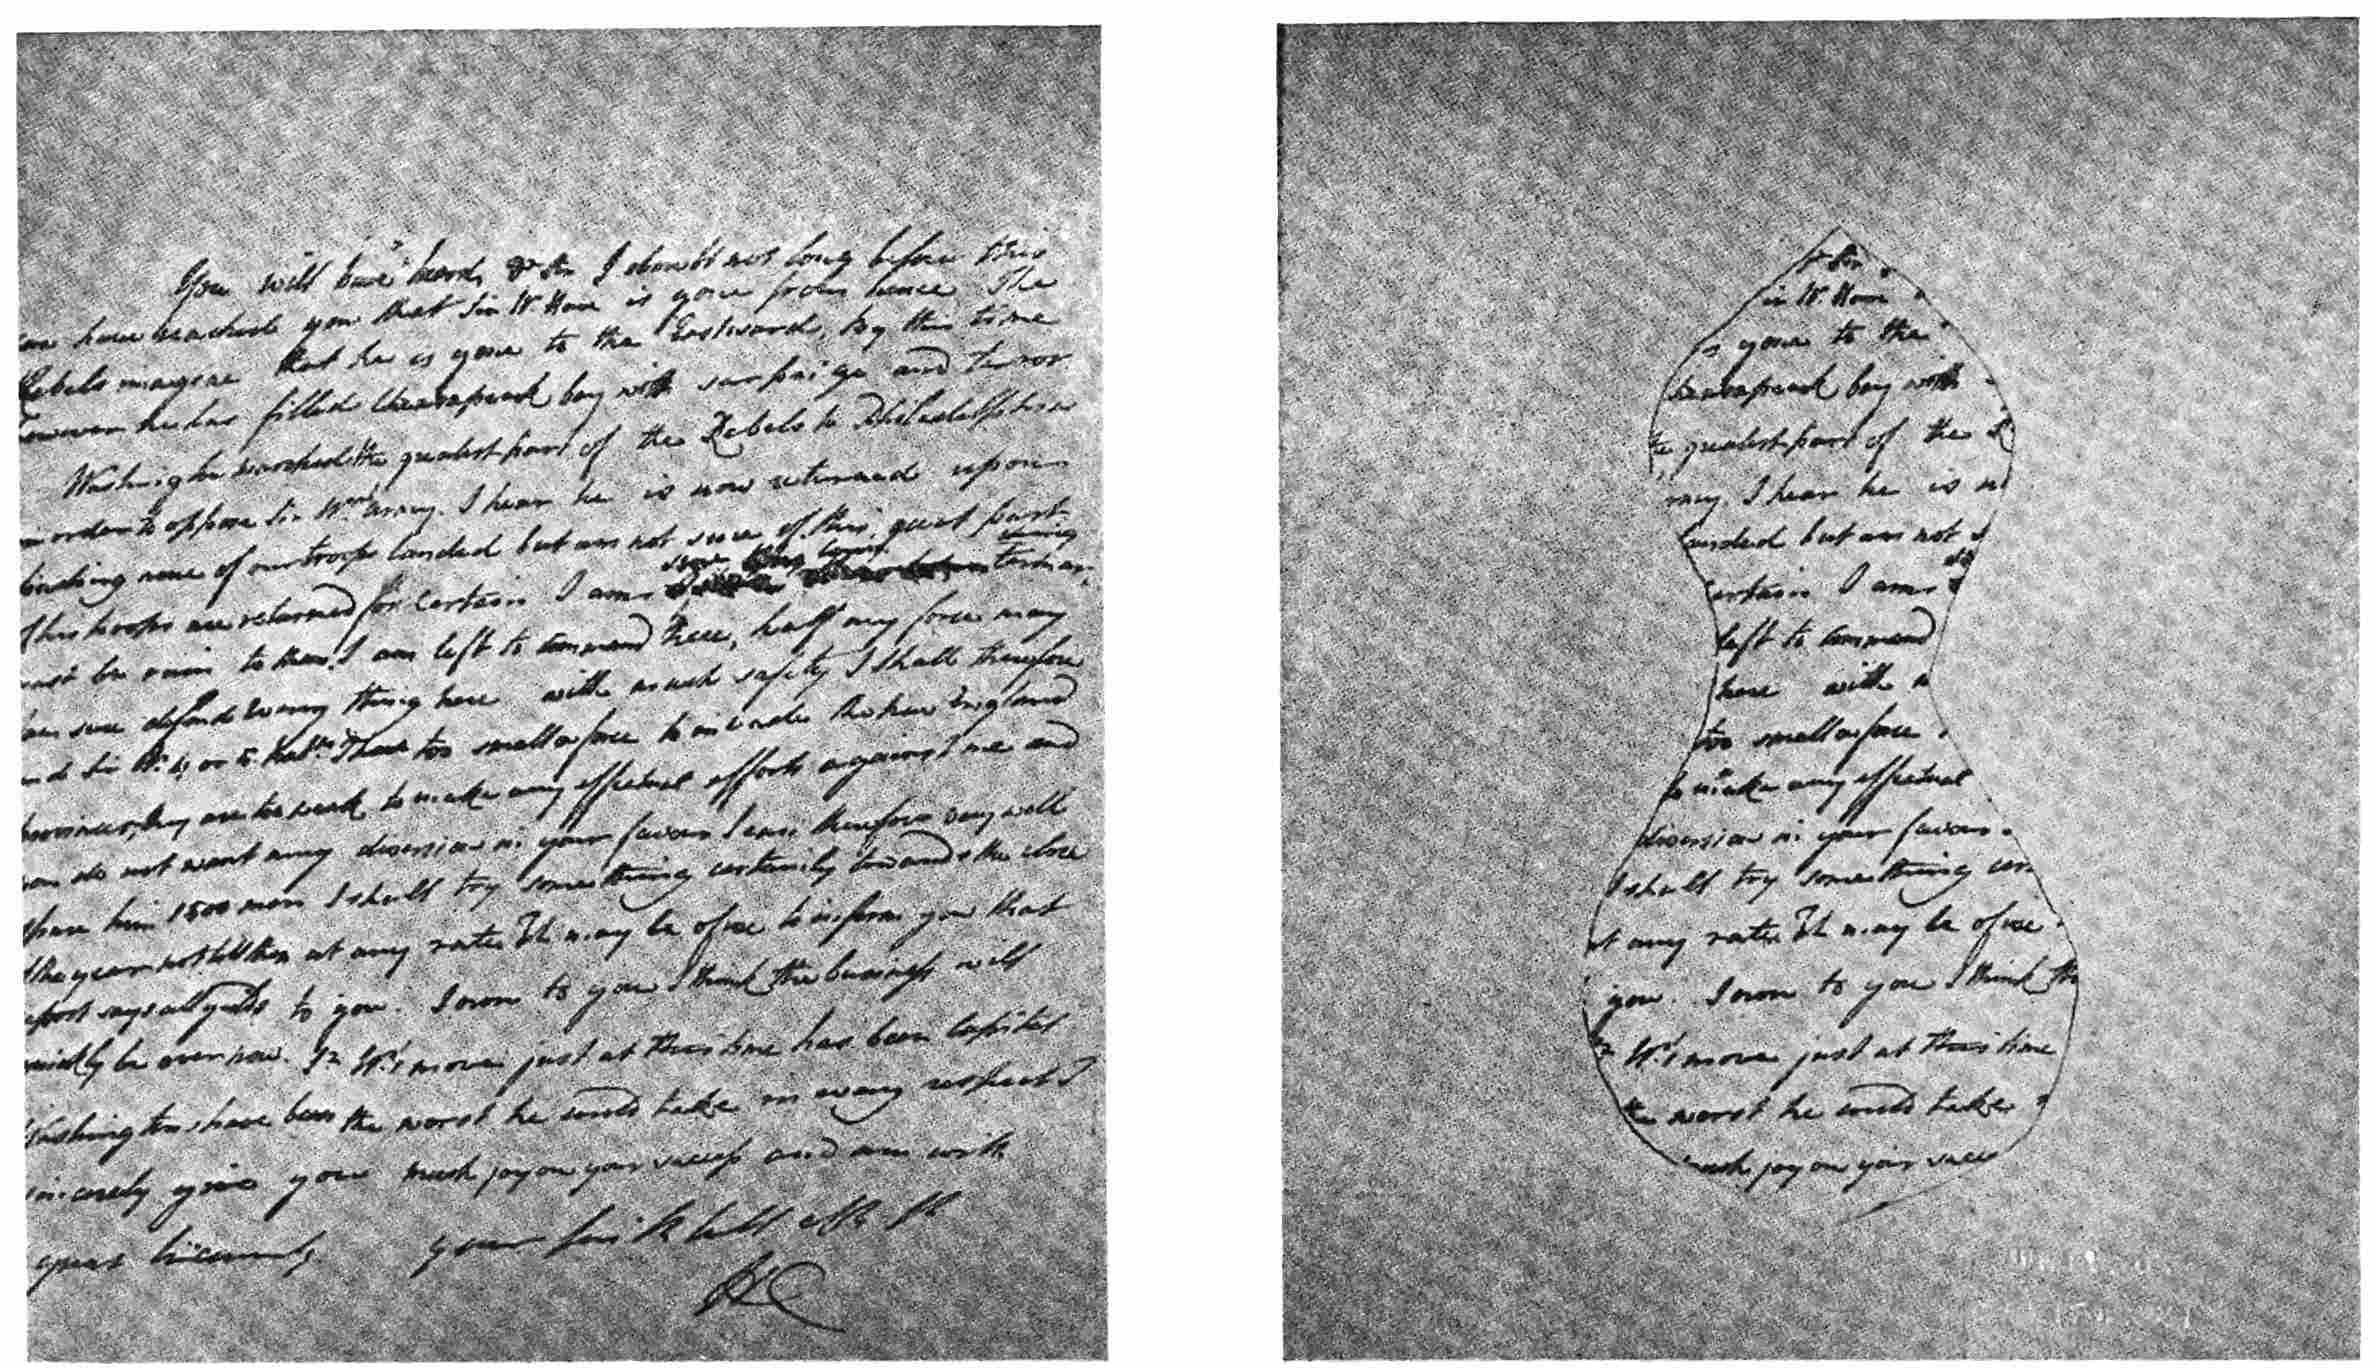 You will have heard, Dr Sir I doubt not long before this
can have reached you that Sir W. Howe is gone from hence. The
Rebels imagine that he is gone to the Eastward, By this time
however he has filled Chesapeak bay with surprize and terror
Washington marched the greatest part of the Rebels to Philadelphia
in order to oppose Sir Wm's army. I hear he is now returned upon
finding none of our troops landed but am not sure of this, great part
of his troops are returned for certain I am sure this counter
must be ruin to them. I am left to command here, half my force may
I am sure defend every thing here with much safety I shall therefore
send Sir W. 4 or 5 Batns. I have too small a force to invade the New England
provinces, they are too weak to make any effectual efforts against me and
you do not want any diversion in your favour I can therefore very well
spare him 1500 men I shall try something certainly towards the close
of the year not till then at any rate. It may be of use to inform you that
report says all yields to you. I own to you I think the business will
quickly be over now. Sr W's move just at this time has been Capital
Washingtons have been the worst he could take in every respect I
sincerely give you much joy on your success and am with
great Sincerity your
HC
Sir
Sir W. Howe
is gone to the
Cheasapeak bay with
the greatest part of the R
army I hear he is n
landed but am not s
certain I am
left to command
here with
too small a force
to make any effectual
diversion in your favour
I shall try something cer
at any rate It may be of use
you. I own to you I think th
Sr W's move just at this time
the worst he could take
much joy on your succe